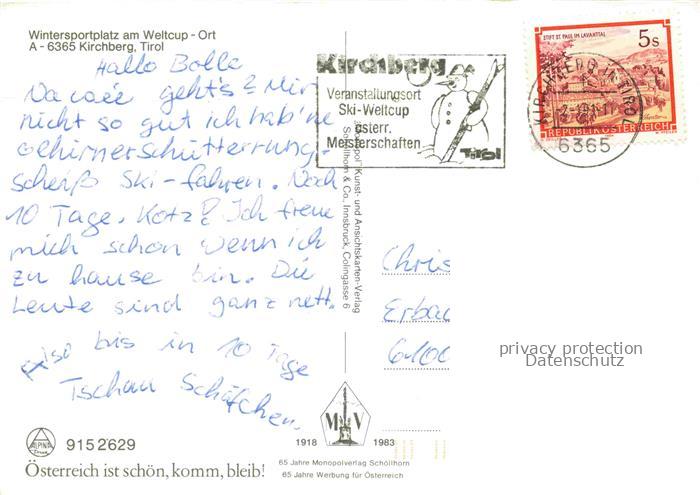 Wintersportplatz am Weltcup - Ort
A - 6365 Kirchberg, Tirol
Hallo Bolle
Na wie geht's? Mir
nicht so gut ich hab'ne
Gehirnerschütterrung.
scheiß Ski-fahren. Noch
10 Tage. Kotz! Ich freue
mich schon wenn ich
zu hause bin. Die
Leute sind ganz nett.
Also bis in 10 Tage
Tschau Schäfchen.
ALPINA
Druck
915 2629
Österreich ist schön, komm, bleib!
Kirchberg
Veranstaltungsort
Ski-Weltcup
österr.
Meisterschaften
Tirol
STIFT ST. PAUL IM LAVANTTAL
5s
REPUBLIK ÖSTERREICH
6365
"Monopol" Kunst- und Ansichtskarten-Verlag
Schöllhorn & Co., Innsbruck, Colingasse 6
Chris
Erbac
6100
privacy protection
Datenschutz
M V
1918 1983
65 Jahre Monopolverlag Schöllhorn
65 Jahre Werbung für Österreich